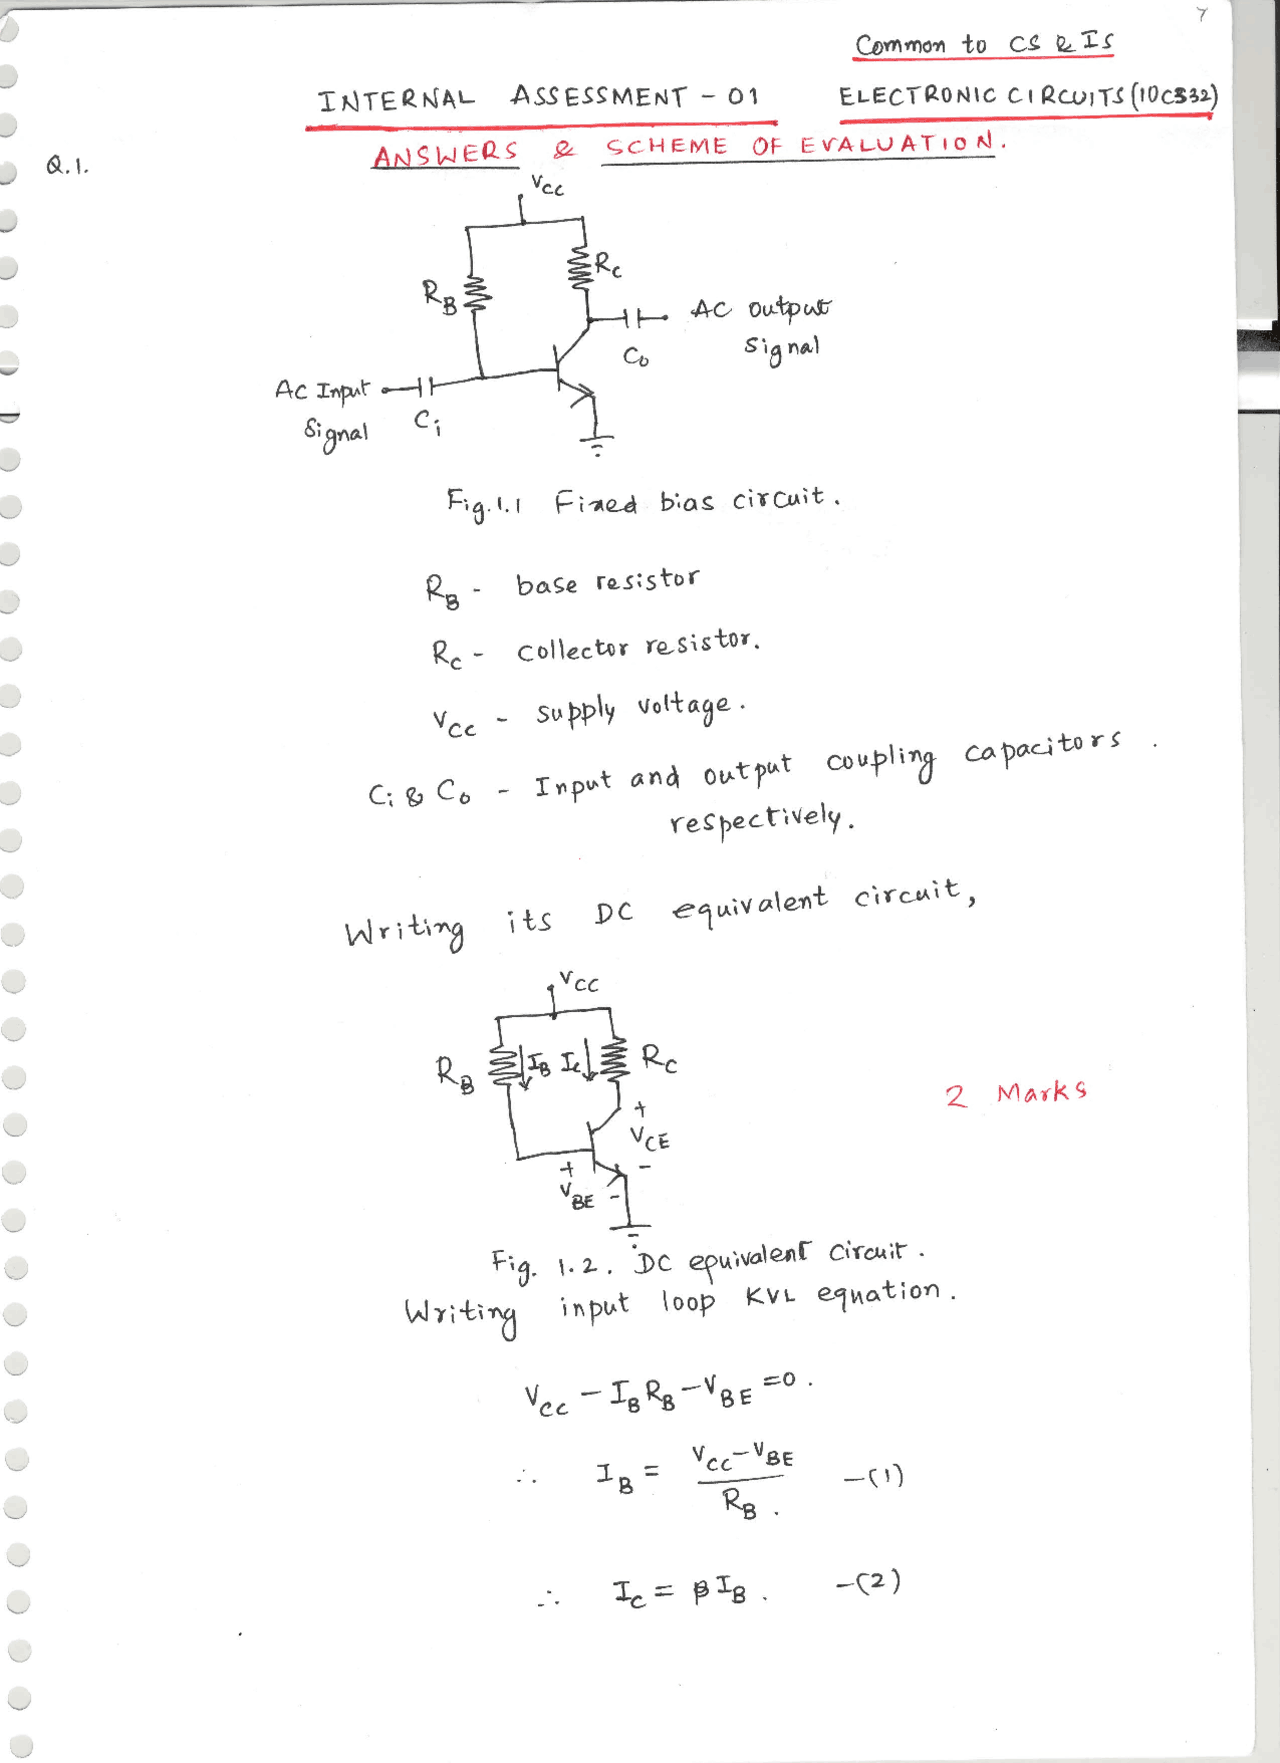 Common to CS & IS
INTERNAL ASSESSMENT - 01 ELECTRONIC CIRCUITS (10CS32)
ANSWERS & SCHEME OF EVALUATION.
Q.1.
Vcc
RB
Rc
AC output
Signal
Co
AC Input
Signal
Ci
Fig.1.1 Fixed bias circuit.
RB - base resistor
Rc - collector resistor.
Vcc - supply voltage.
Ci & Co - Input and output coupling capacitors
respectively.
Writing its DC equivalent circuit,
VCC
RB IB Ic RC
+
VCE
-
+
VBE -
2 Marks
Fig. 1.2. DC equivalent circuit.
Writing input loop KVL equation.
Vcc - IB RB - VBE = 0.
∴ IB = Vcc - VBE / RB. -(1)
∴ Ic = β IB. -(2)